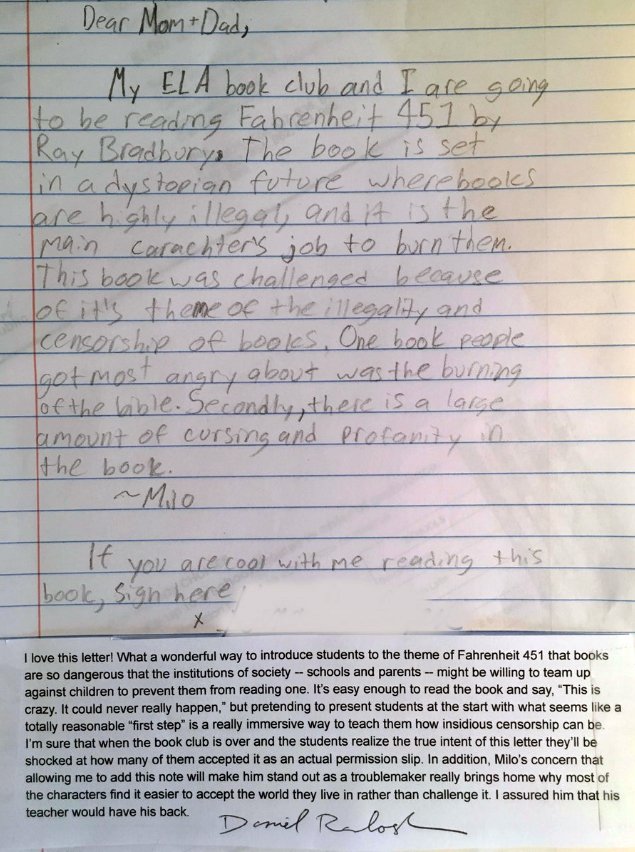 Dear Mom + Dad,
My ELA book club and I are going
to be reading Fahrenheit 451 by
Ray Bradbury. The book is set
in a dystopian future where books
are highly illegal, and it is the
main carachter's job to burn them.
This book was challenged because
of it's theme of the illegality and
censorship of books. One book people
got most angry about was the burning
of the bible. Secondly, there is a large
amount of cursing and profanity in
the book.
~Milo
If you are cool with me reading this
book, sign here
x
I love this letter! What a wonderful way to introduce students to the theme of Fahrenheit 451 that books
are so dangerous that the institutions of society -- schools and parents -- might be willing to team up
against children to prevent them from reading one. It's easy enough to read the book and say, "This is
crazy. It could never really happen," but pretending to present students at the start with what seems like a
totally reasonable "first step" is a really immersive way to teach them how insidious censorship can be.
I'm sure that when the book club is over and the students realize the true intent of this letter they'll be
shocked at how many of them accepted it as an actual permission slip. In addition, Milo's concern that
allowing me to add this note will make him stand out as a troublemaker really brings home why most of
the characters find it easier to accept the world they live in rather than challenge it. I assured him that his
teacher would have his back.
Daniel Radosh